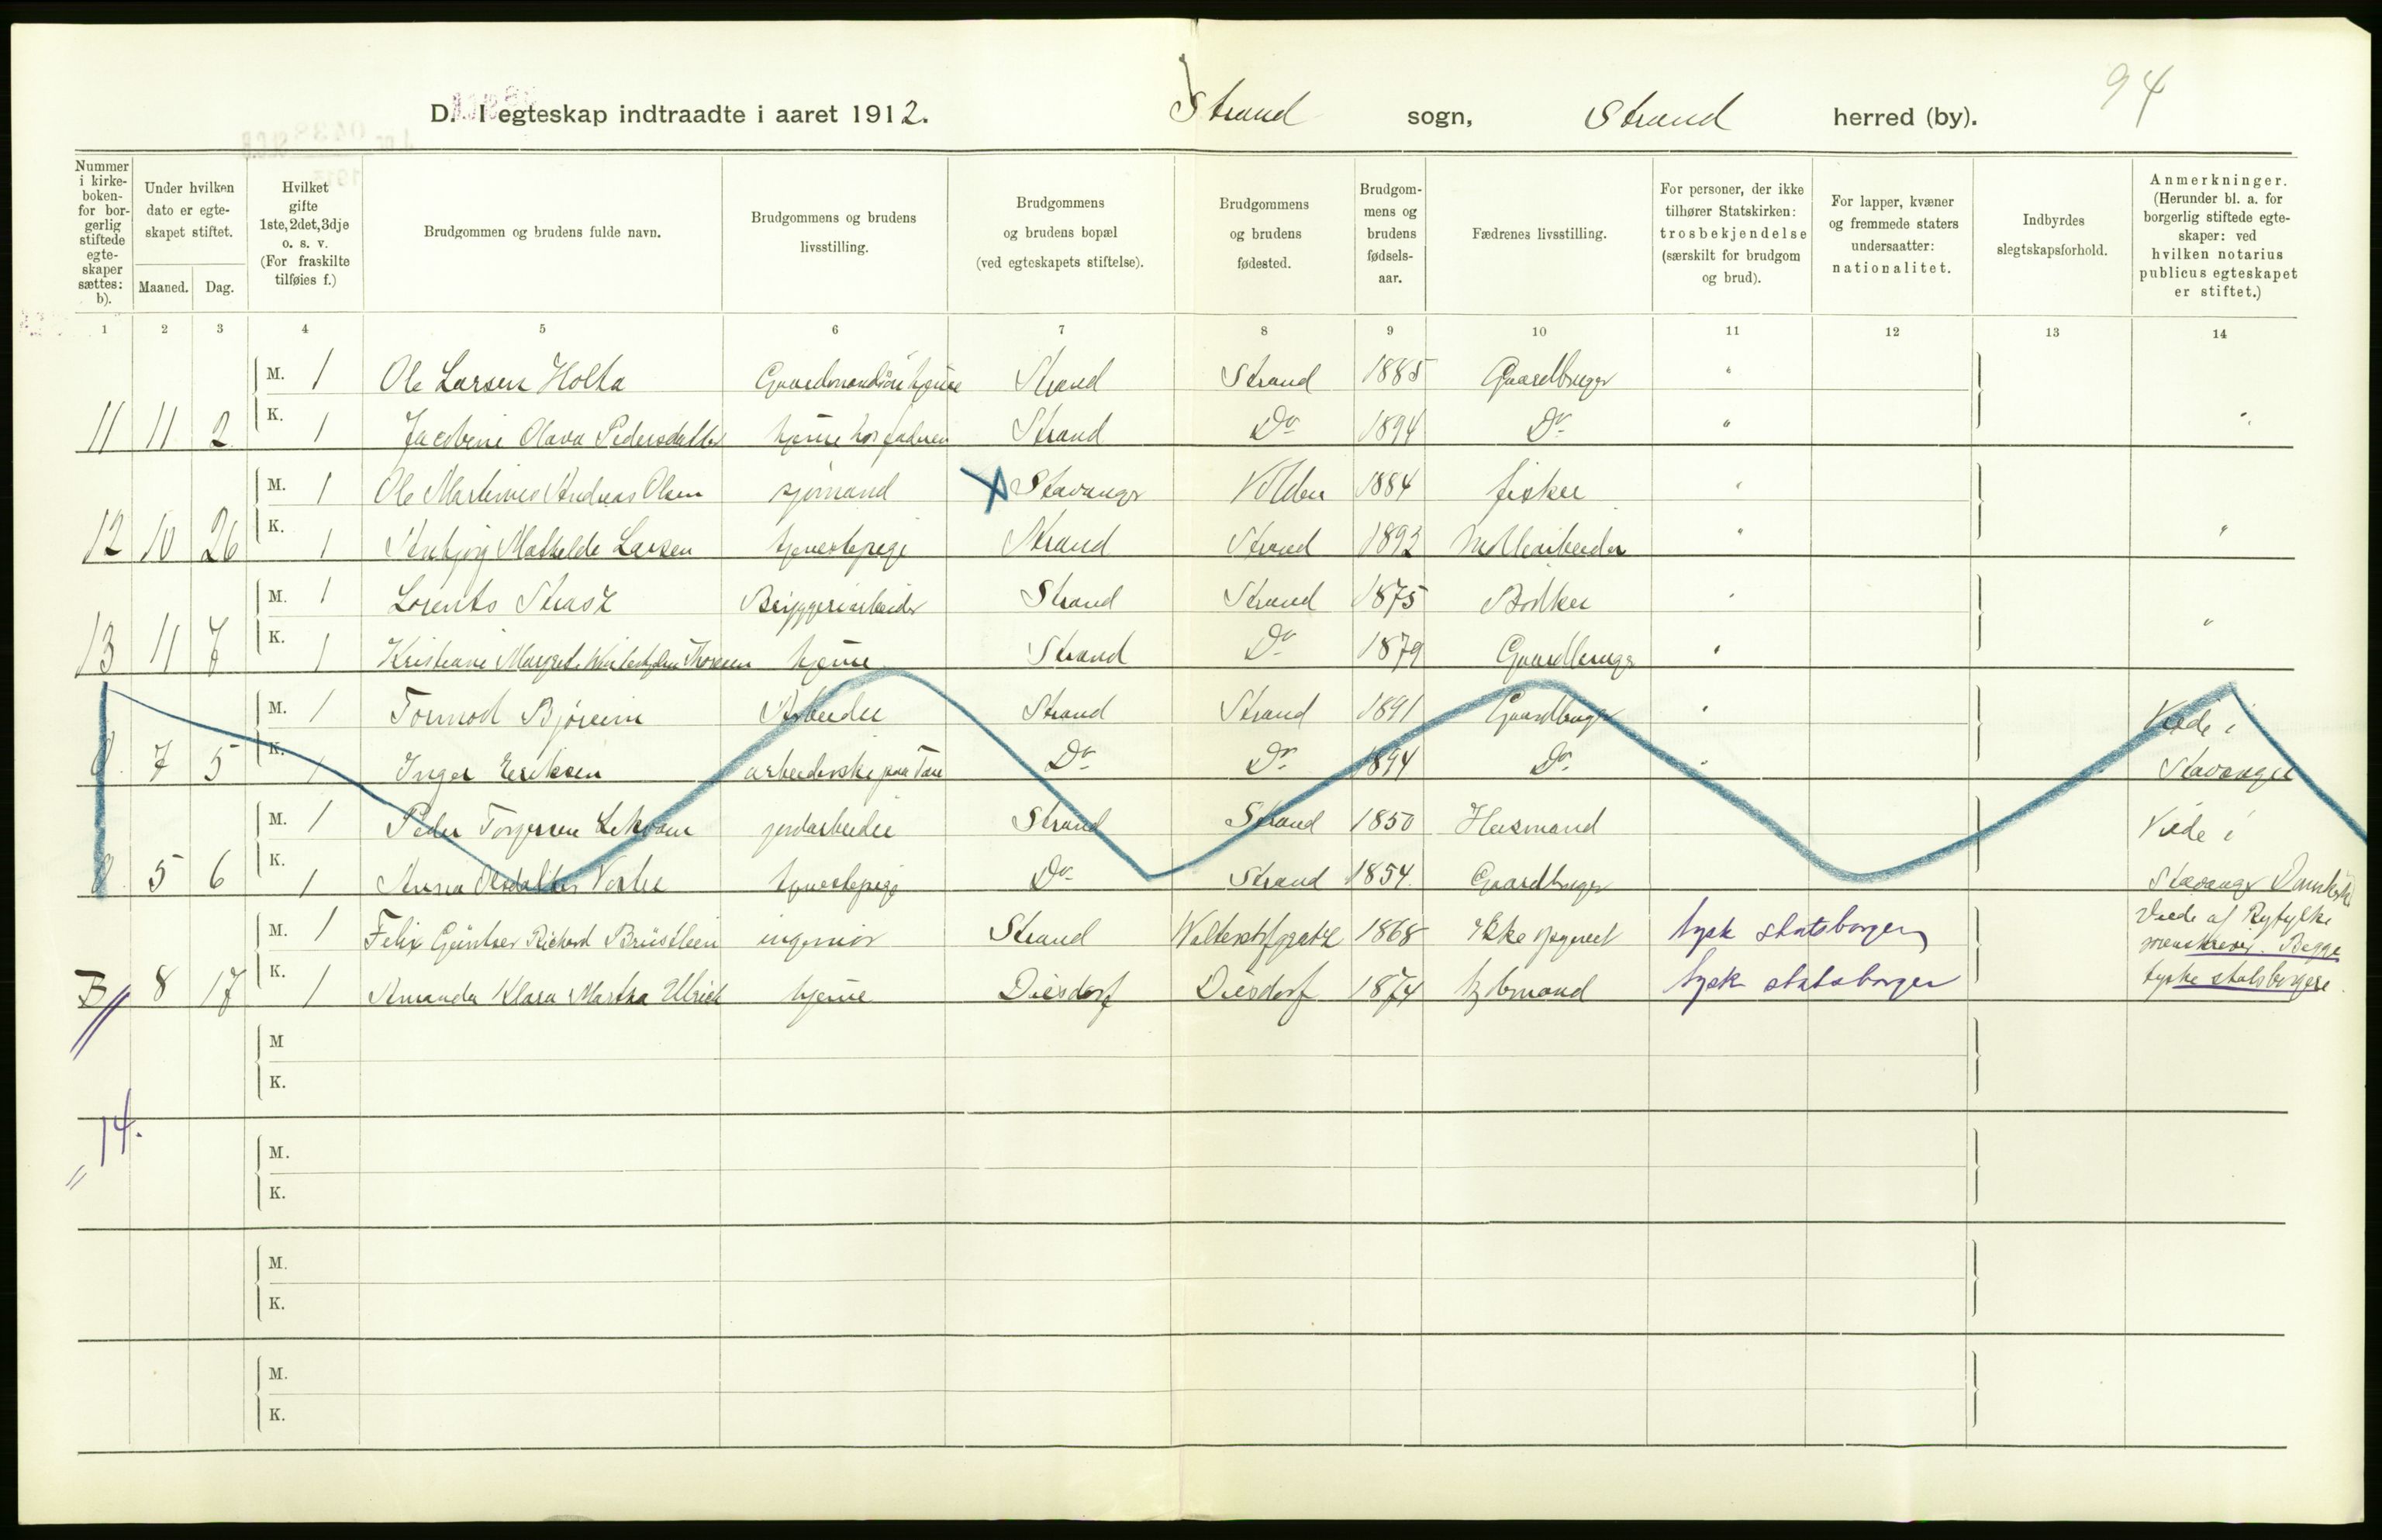 94
D. I egteskap indtraadte i aaret 1912. Strand sogn, Strand herred (by).
Nummer i kirke-boken- for bor-gerlig stiftede egte-skaper sættes: b).
Under hvilken dato er egte-skapet stiftet.
Maaned. Dag.
Hvilket gifte 1ste, 2det, 3dje o. s. v. (For fraskilte tilføies f.)
Brudgommen og brudens fulde navn.
Brudgommens og brudens livsstilling.
Brudgommens og brudens bopæl (ved egteskapets stiftelse).
Brudgommens og brudens fødested.
Brudgom-mens og brudens fødsels-aar.
Fædrenes livsstilling.
For personer, der ikke tilhører Statskirken: trosbekjendelse (særskilt for brudgom og brud).
For lapper, kvæner og fremmede staters undersaatter: nationalitet.
Indbyrdes slegtskapsforhold.
Anmerkninger. (Herunder bl. a. for borgerlig stiftede egte-skaper: ved hvilken notarius publicus egteskapet er stiftet.)
1 2 3 4 5 6 7 8 9 10 11 12 13 14
M. 1 Ole Larsen Holta Strand Strand 1885 Gaardbruger "
11 11 2 K. 1 Jacobine Olava Pedersdatter hjemme hos faderen Strand Do 1894 Do " "
M. 1 Ole Martinus Andreas Olsen sjømand Stavanger Volden 1884 fisker "
12 10 26 K. 1 Anbjørg Mathilde Larsen tjenestepige Strand Strand 1892 Møllearbeider " "
M. 1 Lorents Bryggeriarbeider Strand Strand 1875 Bødker "
13 11 7 K. 1 Kristiane Margrete Thorsen hjemme Strand Do 1879 Gaardbruger " "
M. 1 Tormod Bjøreim Arbeider Strand Strand 1891 Gaardbruger " Viede i
0. 7 5 K. 1 Inger Eriksen arbeiderske paa Tau Do Do 1894 Do " Stavanger
M. 1 Peder Torgersen Lekvam jordarbeider Strand Strand 1850 Husmand Viede i
0. 5 6 K. 1 Anna Olsdatter tjenestepige Do Strand 1854 Gaardbruger Stavanger Domkirke
M. 1 Felix Günther Richard Brüstlein ingeniør Strand 1868 Ikke opgivet tysk statsborger Viede af Ryfylke
sorenskriver. Begge
B 8 17 K. 1 Amanda Klara Martha Ulrich hjemme Diesdorf Diesdorf 1874 tysk statsborger tyske statsborgere.
M
K.
14.
M.
K.
M.
K.
M.
K.